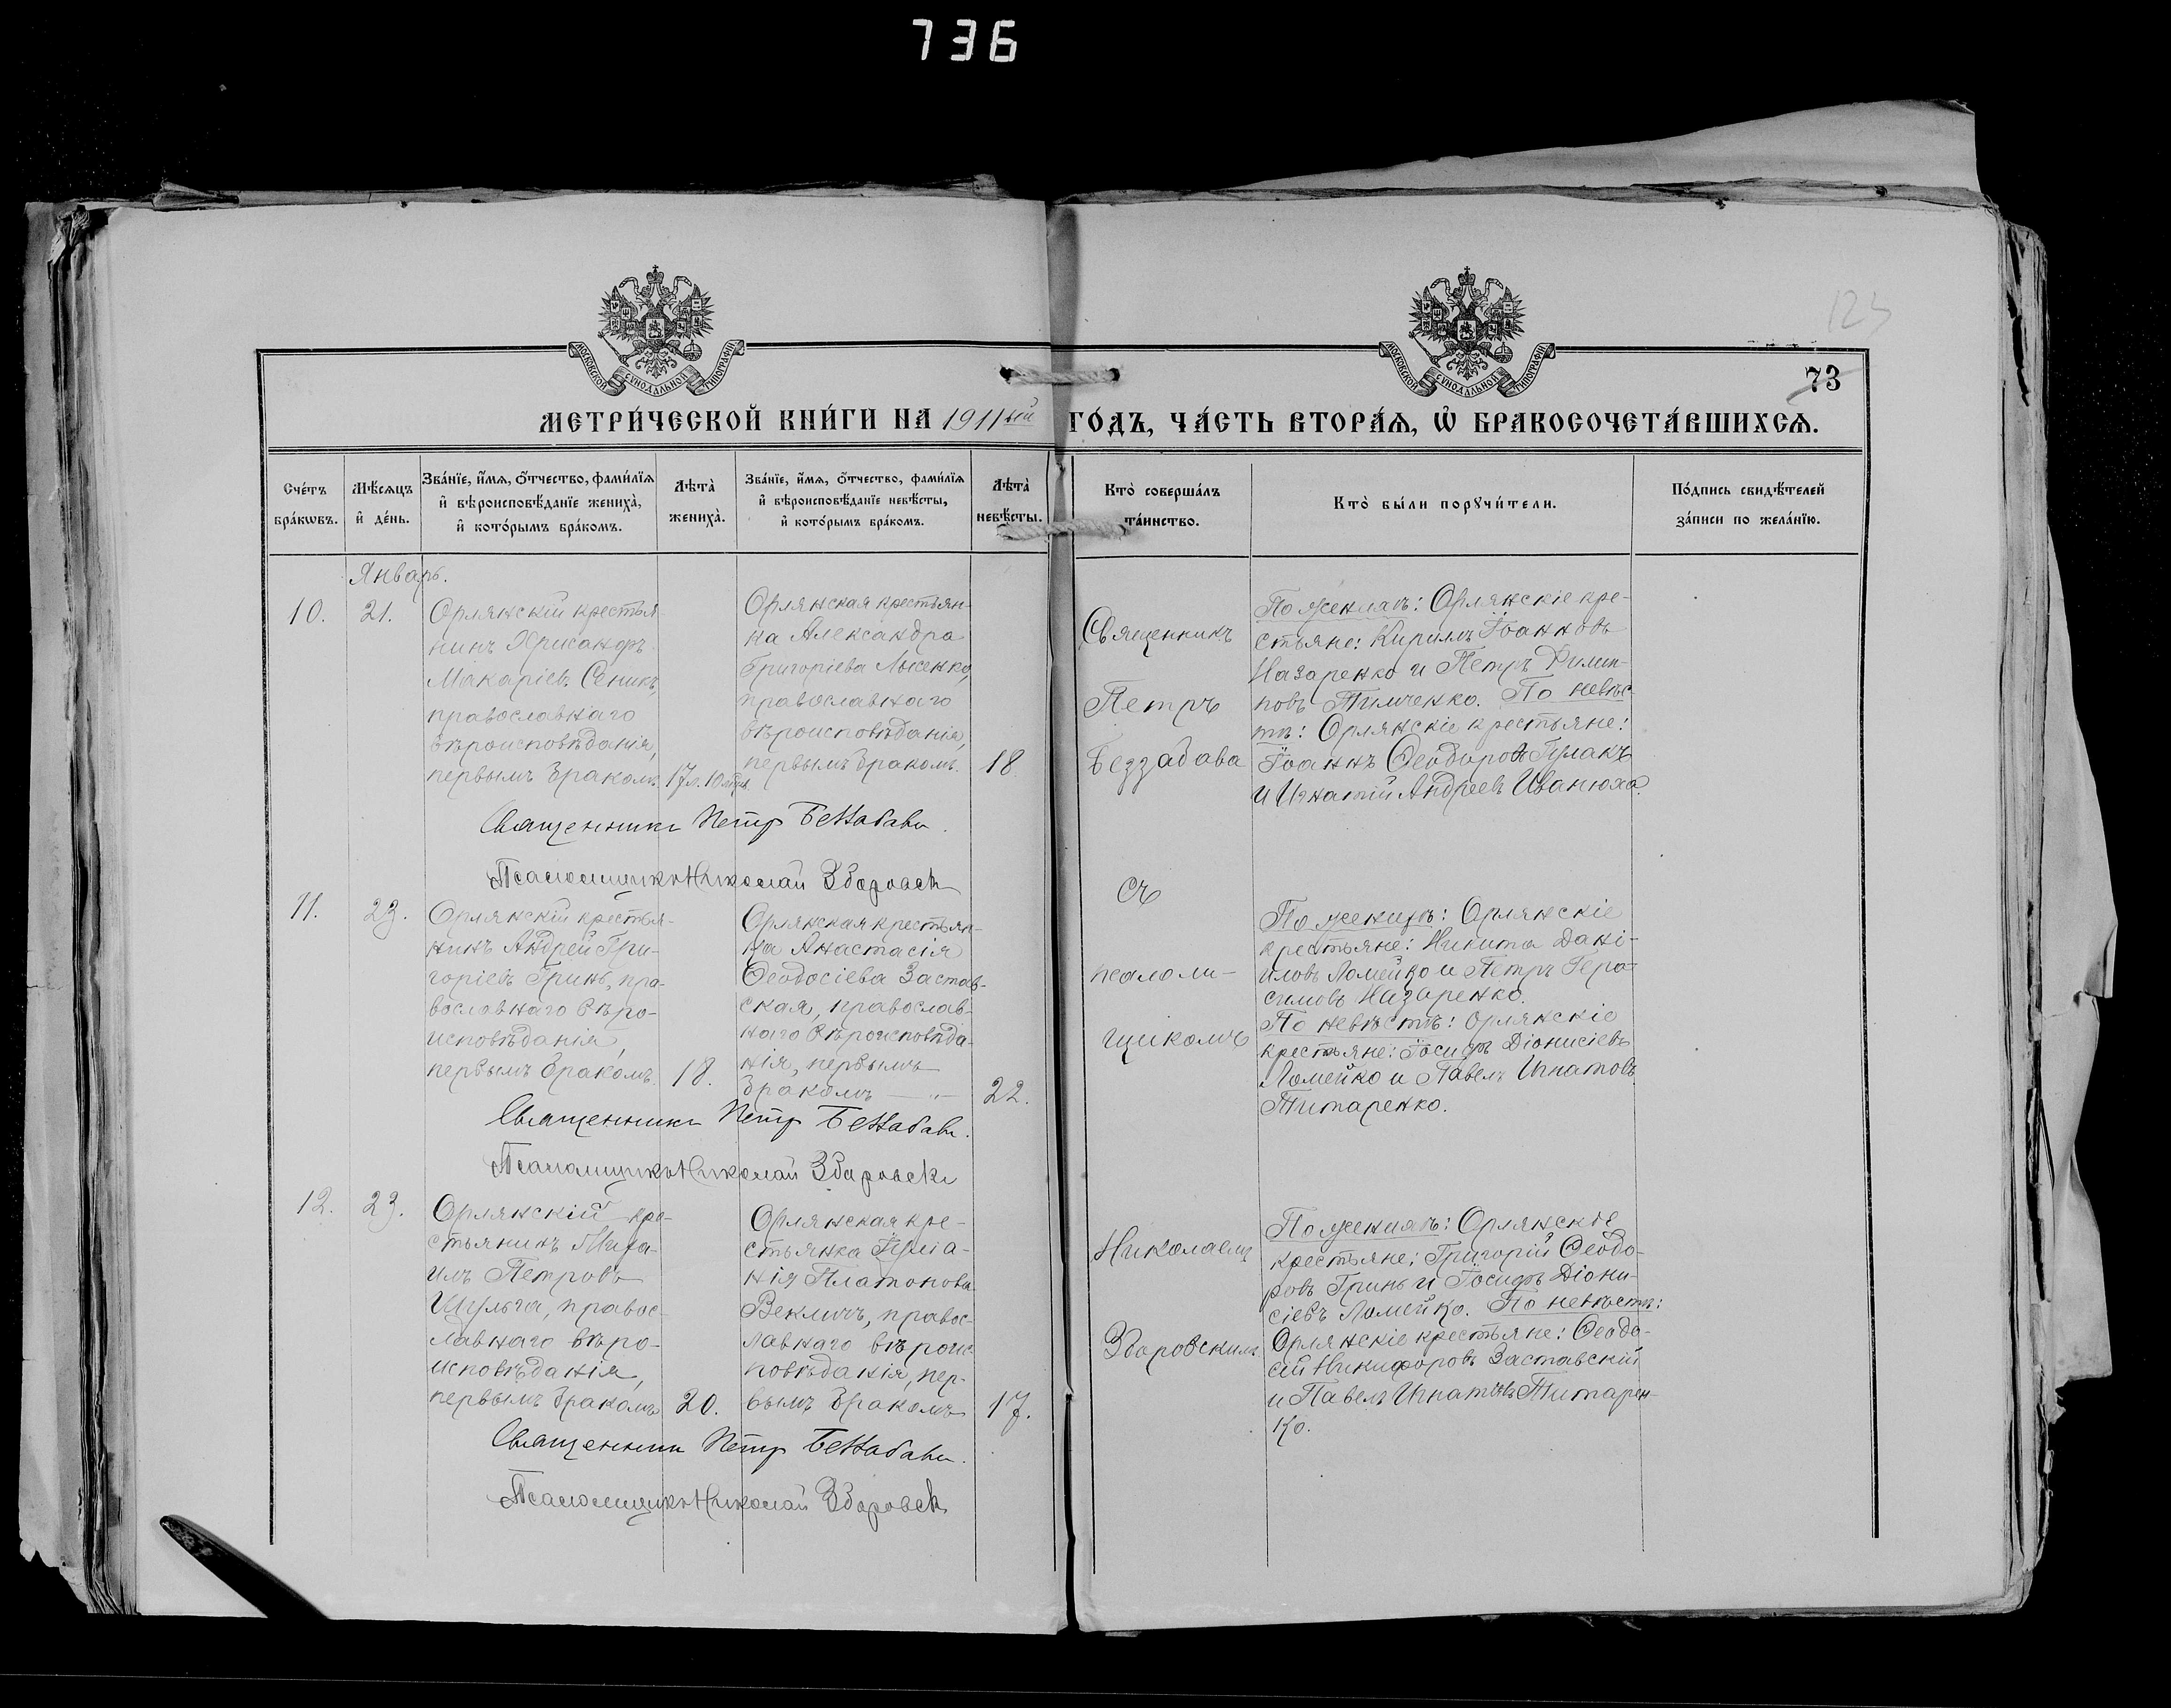 736
123
73
МОСКОВСКОЙ СѴНОДАЛЬНОЙ ТИПОГРАФІИ
МОСКОВСКОЙ СѴНОДАЛЬНОЙ ТИПОГРАФІИ
МЕТРИ́ЧЕСКОЙ КНИ́ГИ НА 1911ый ГО́ДЪ, ЧА́СТЬ ВТОРА́Ѧ, Ѡ҆ БРАКОСОЧЕТА́ВШИХСѦ.
Сче́тъ бра́кѡвъ.
Мѣ́сѧцъ и҆ де́нь.
Зва́нїе, и҆́мѧ, ѻ҆́тчество, фами́лїѧ
и҆ вѣроисповѣ́данїе жениха̀,
и҆ кото́рымъ бра́комъ.
Лѣта̀ жениха̀.
Зва́нїе, и҆́мѧ, ѻ҆́тчество, фами́лїѧ
и҆ вѣроисповѣ́данїе невѣ́сты,
и҆ кото́рымъ бра́комъ.
Лѣта̀ невѣ́сты.
Кто̀ соверша́лъ та́инство.
Кто̀ бы́ли порꙋчи́тели.
По́дпись свидѣ́телей за́писи по жела́нїю.
Январь.
10.
21.
Орлянскій крестья
нинъ Хрисанфъ
Макаріев. Сеникъ,
православнаго
вѣроисповѣданія,
первымъ бракомъ.
17 л. 10 мѣц.
Орлянская крестьян-
ка Александра
Григоріева Лысенко,
православнаго
вѣроисповѣданія,
первымъ бракомъ.
18
Священникъ
Петръ
Беззабава
По женихѣ: Орлянскіе кре-
стьяне: Кирилъ Іоанновъ
Назаренко и Петръ Филип-
повъ Тимченко. По невѣс-
тѣ: Орлянскіе крестьяне:
Іоаннъ Ѳеодоровъ
и Игнатій Андреевъ Иванюха.
Священникъ Петръ Беззабава.
Псаломщикъ Николай Здоровскі
11.
23.
Орлянскій крестья-
нинъ Андрей Гри-
горіевъ Гринь, пра-
вославнаго вѣро-
исповѣданія,
первымъ бракомъ.
18.
Орлянская крестьян-
ка Анастасія
Ѳеодосіева Застав-
ская, православ-
наго вѣроисповѣда-
нія, первымъ
бракомъ — „ —
22.
съ
псалом-
щикомъ
По женихѣ: Орлянскіе
крестьяне: Никита Дані-
иловъ Ломейко и Петръ Гера-
симовъ Назаренко.
По невѣстѣ: Орлянскіе
крестьяне: Іосифъ Діонисіевъ
Ломейко и Павелъ Игнатовъ
Титаренко.
Священникъ Петръ Беззабава.
Псаломщикъ Николай Здоровскі
12.
23.
Орлянскій кре-
стьянинъ Миха-
илъ Петровъ
Шульга, правос-
лавнаго вѣро-
исповѣданія,
первымъ бракомъ
20.
Орлянская кре-
стьянка Іуліа-
нія Платонова
Векличъ, правос-
лавнаго вѣроис
повѣданія, пер-
вымъ бракомъ
17.
Николаемъ
Здоровскимъ
По женихѣ: Орлянскіе
крестьяне: Григорій Ѳеодо-
ровъ Гринь и Іосифъ Діони-
сіевъ Ломейко. По невѣстѣ:
Орлянскіе крестьяне: Ѳеодо-
сій Никифоровъ Заставскій
и Павелъ Игнатовъ Титарен-
ко.
Священникъ Петръ Беззабава.
Псаломщикъ Николай Здоровскі